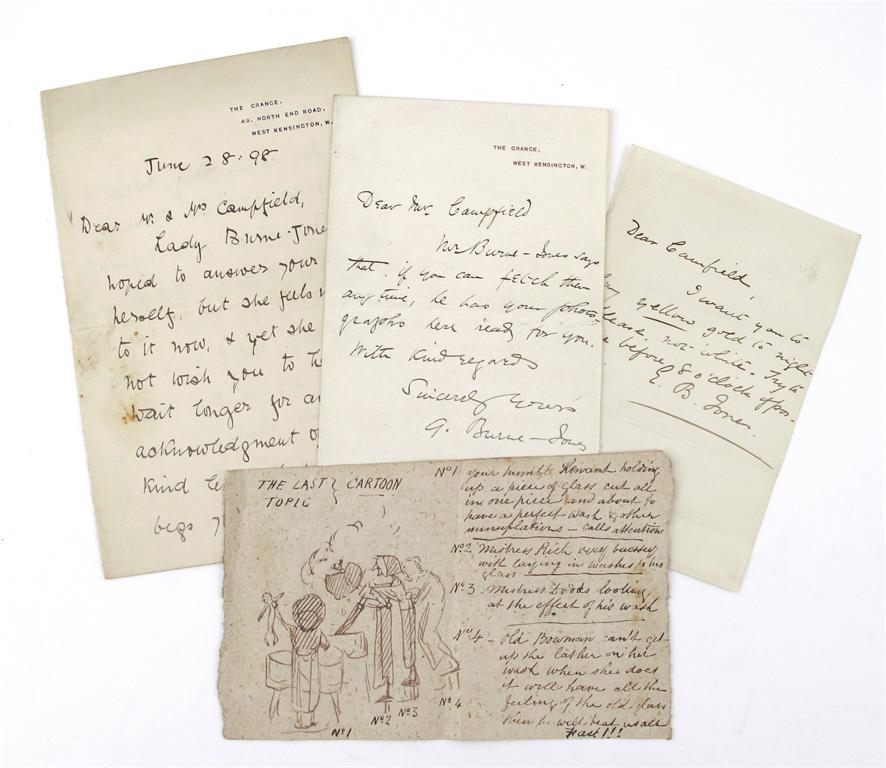 THE GRANGE,
49, NORTH END ROAD,
WEST KENSINGTON, W.
June 28. 98.
Dear Mr. & Mrs Campfield,
Lady Burne-Jone
hoped to answer your
herself, but she feels
to it now, & yet she
not wish you to
wait longer for an
acknowledgment o
kind
begs
THE GRANGE,
WEST KENSINGTON, W.
Dear Mr. Campfield
Mr Burne-Jones says
that if you can fetch them
any time, he has your photo-
graphs here ready for you.
With kind regards
Sincerely Yours
G. Burne-Jones
Dear Campfield,
I want you to
yellow gold to night
please, not white - Try to
before 8 o'clock
E. B. Jones.
THE LAST } CARTOON
TOPIC
No 1 your humble Servant holding
up a piece of glass cut all
in one piece and about to
have a perfect wash & other
minuplations - calls attention
No 2 Mistress Rich very bussey
with laying in washes to his
glass
No 3 - Mistress Dodds looking
at the effect of his wash
No 4 - Old Bowman can't get
up the lather on her
wash when she does
it will have all the
feeling of the old glass
then he will beat us all
Fast!!!
No 1
No 2
No 3
No 4